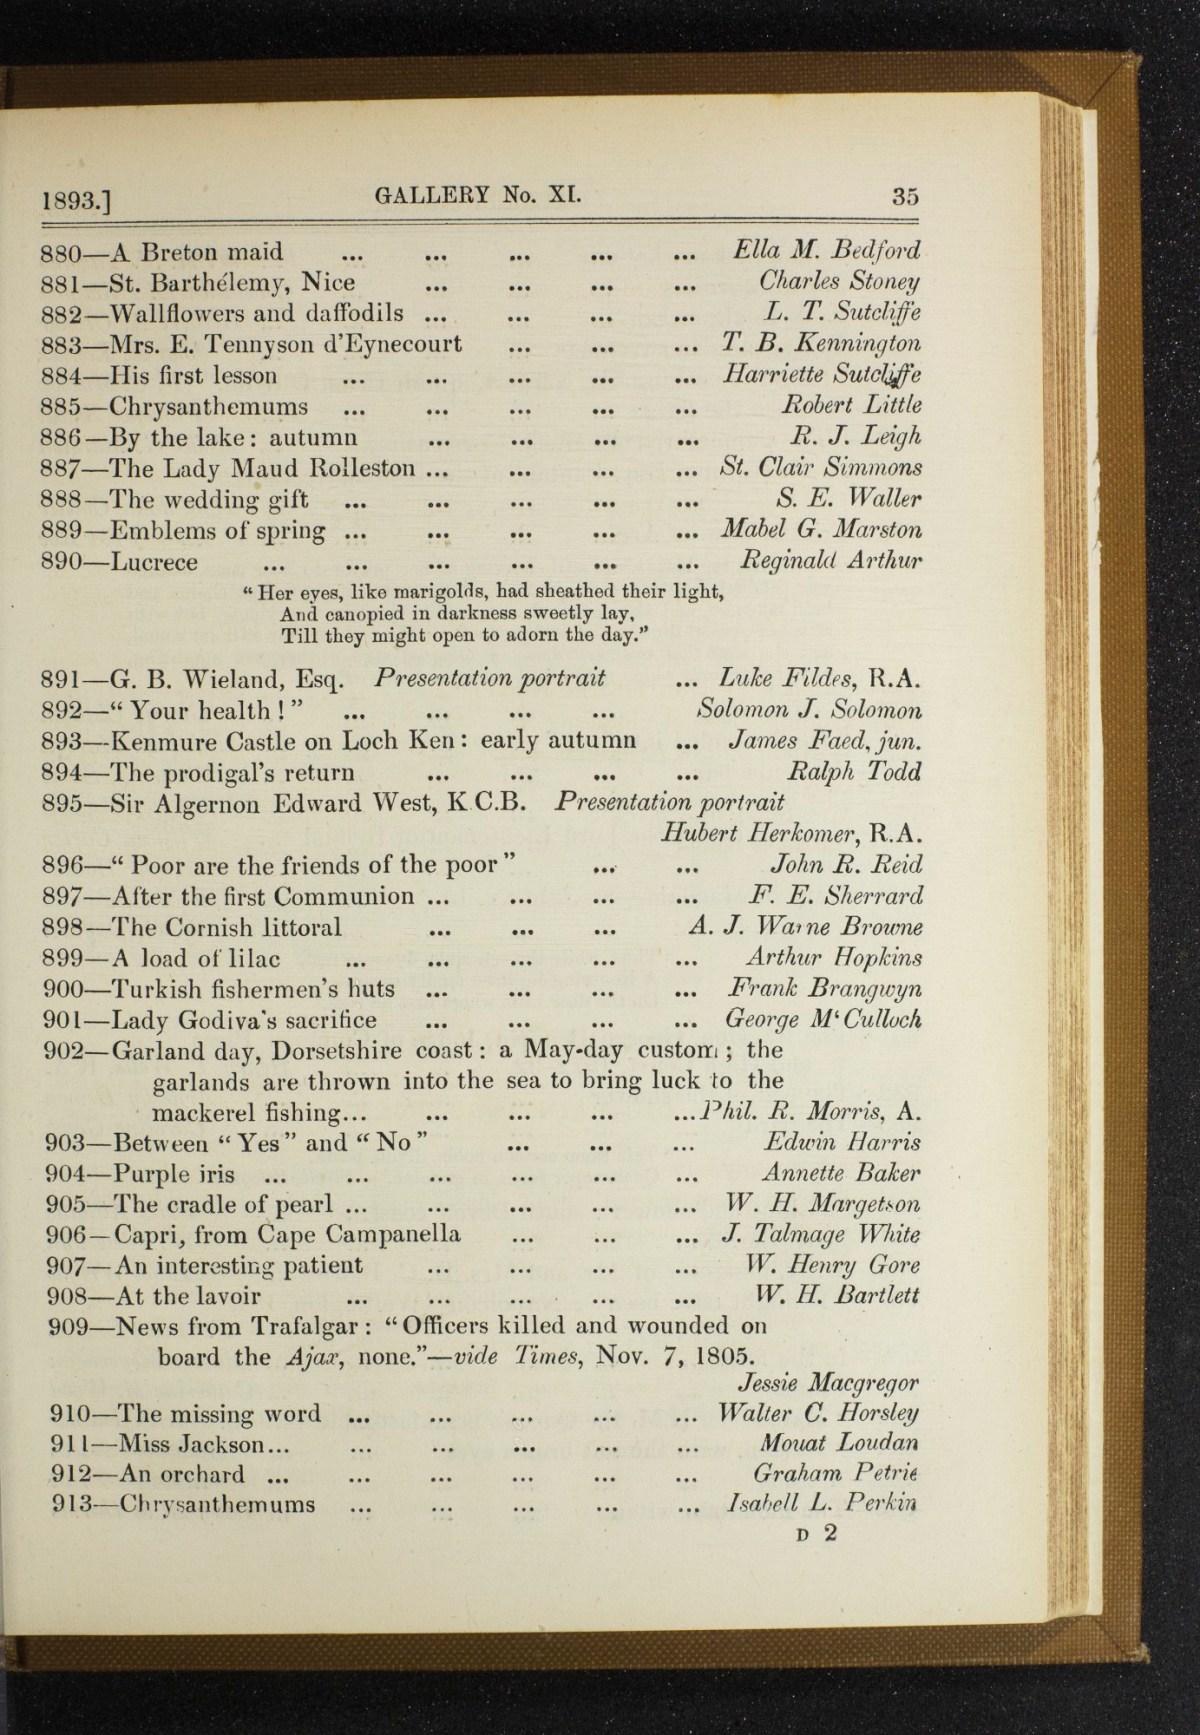 1893.] GALLERY No. XI. 35
880—A Breton maid ... ... ... ... ... Ella M. Bedford
881—St. Barthélemy, Nice ... ... ... ... Charles Stoney
882—Wallflowers and daffodils ... ... ... ... L. T. Sutcliffe
883—Mrs. E. Tennyson d'Eynecourt ... ... ... T. B. Kennington
884—His first lesson ... ... ... ... ... Harriette Sutcliffe
885—Chrysanthemums ... ... ... ... ... Robert Little
886—By the lake: autumn ... ... ... ... R. J. Leigh
887—The Lady Maud Rolleston ... ... ... ... St. Clair Simmons
888—The wedding gift ... ... ... ... ... S. E. Waller
889—Emblems of spring ... ... ... ... ... Mabel G. Marston
890—Lucrece ... ... ... ... ... ... Reginald Arthur
"Her eyes, like marigolds, had sheathed their light,
And canopied in darkness sweetly lay,
Till they might open to adorn the day."
891—G. B. Wieland, Esq. Presentation portrait ... Luke Fildes, R.A.
892—"Your health!" ... ... ... ... Solomon J. Solomon
893—Kenmure Castle on Loch Ken: early autumn ... James Faed, jun.
894—The prodigal's return ... ... ... ... Ralph Todd
895—Sir Algernon Edward West, K.C.B. Presentation portrait
Hubert Herkomer, R.A.
896—"Poor are the friends of the poor" ... ... John R. Reid
897—After the first Communion ... ... ... ... F. E. Sherrard
898—The Cornish littoral ... ... ... A. J. Warne Browne
899—A load of lilac ... ... ... ... ... Arthur Hopkins
900—Turkish fishermen's huts ... ... ... ... Frank Brangwyn
901—Lady Godiva's sacrifice ... ... ... ... George M'Culloch
902—Garland day, Dorsetshire coast: a May-day custom; the
garlands are thrown into the sea to bring luck to the
mackerel fishing... ... ... ... ...Phil. R. Morris, A.
903—Between "Yes" and "No" ... ... ... Edwin Harris
904—Purple iris ... ... ... ... ... ... Annette Baker
905—The cradle of pearl ... ... ... ... ... W. H. Margetson
906—Capri, from Cape Campanella ... ... ... J. Talmage White
907—An interesting patient ... ... ... ... W. Henry Gore
908—At the lavoir ... ... ... ... ... W. H. Bartlett
909—News from Trafalgar: "Officers killed and wounded on
board the Ajax, none."—vide Times, Nov. 7, 1805.
Jessie Macgregor
910—The missing word ... ... ... ... ... Walter C. Horsley
911—Miss Jackson... ... ... ... ... ... Mouat Loudan
912—An orchard ... ... ... ... ... ... Graham Petrie
913—Chrysanthemums ... ... ... ... ... Isabell L. Perkin
D 2